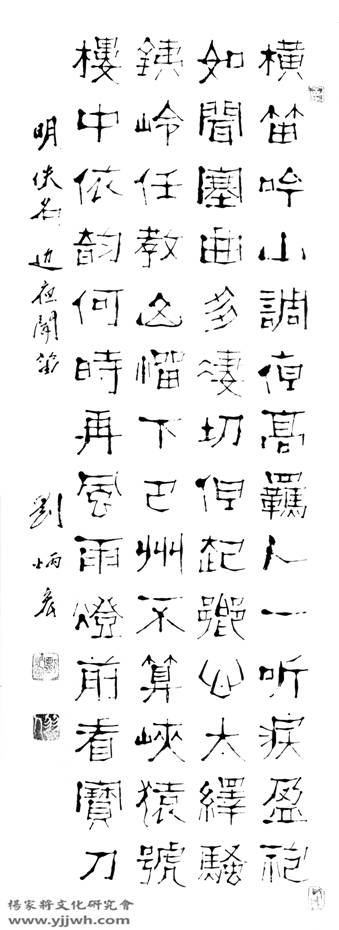 橫笛吟山調夜高羈人一听淚盈袍
如聞塞曲多淒切但起鄉心太繹騷
銕岭任教下巴州不算峽猿號
樓中依韵何時再風雨燈前看寶刀
明佚名边夜聞笛 劉炳森
楊家將文化研究會
www.yjjwh.com